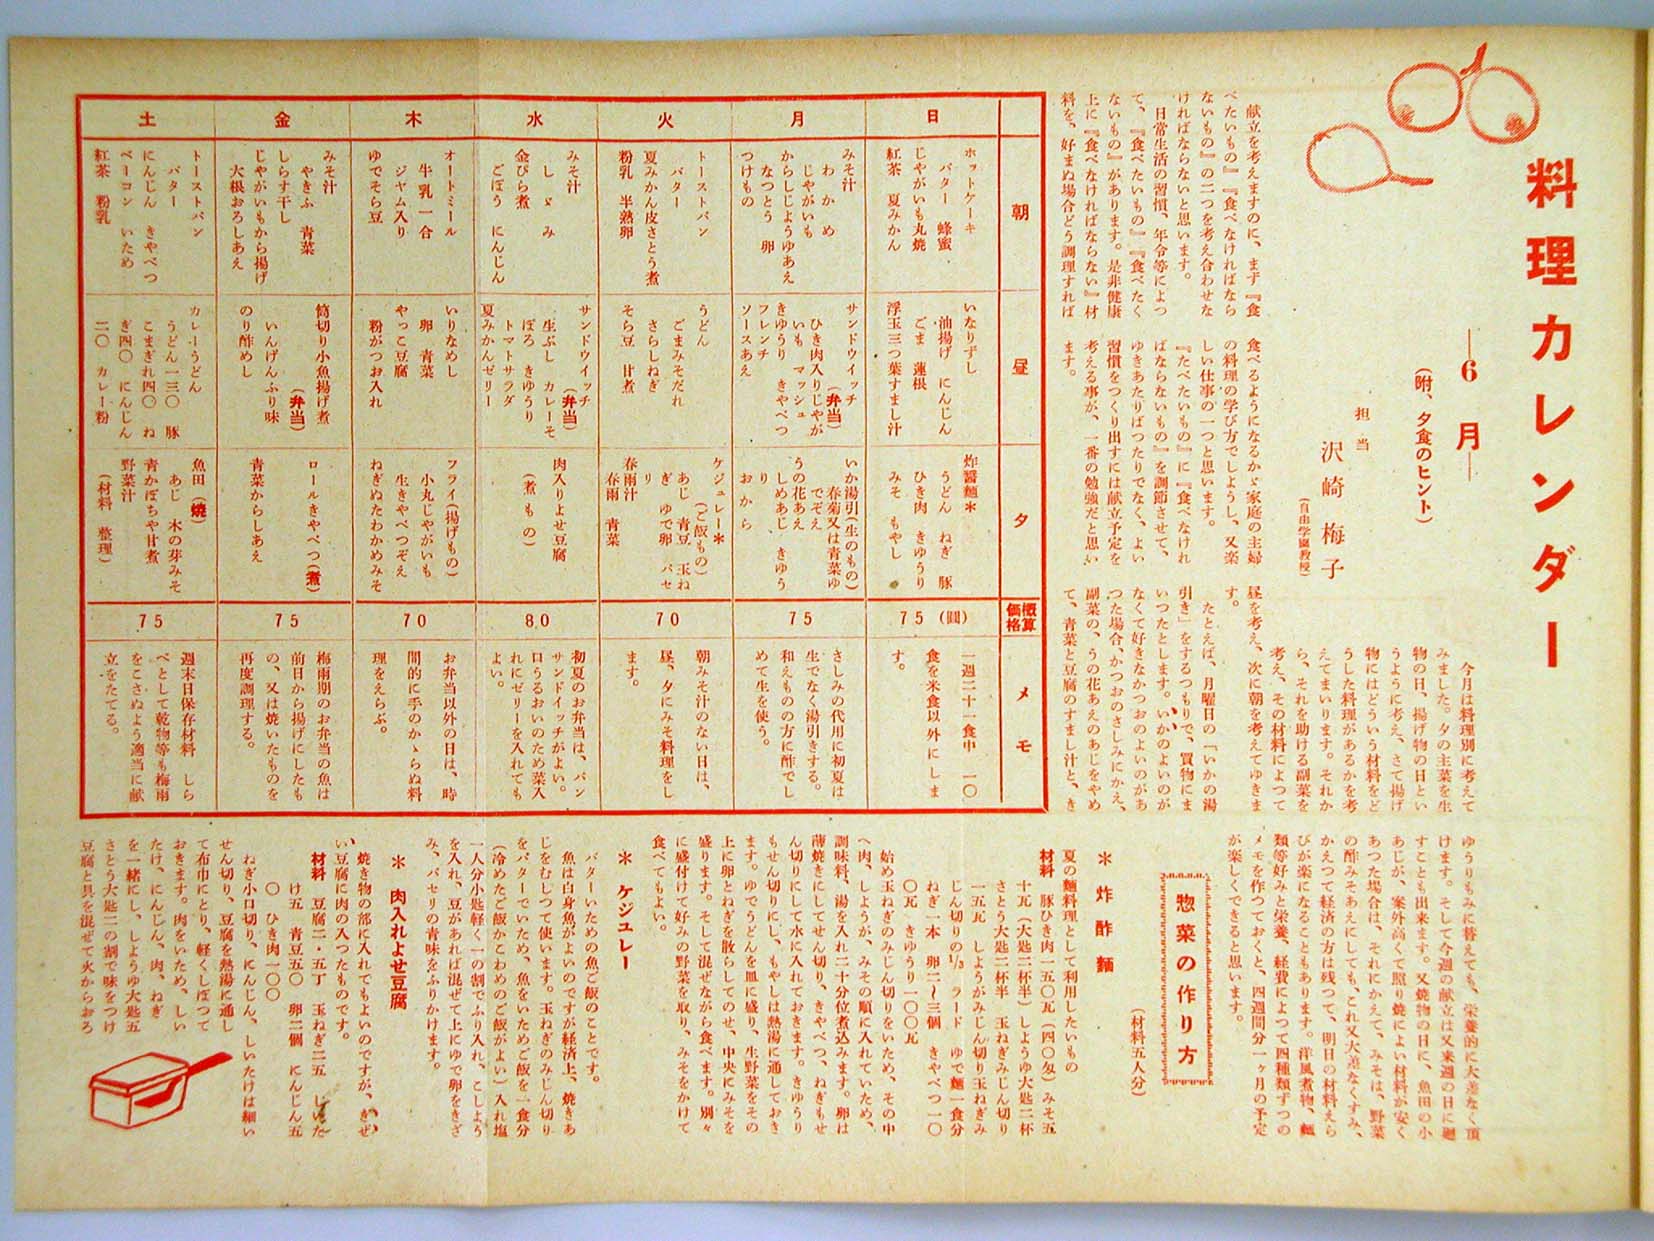 料理カレンダー
―6月―
(附、夕食のヒント)
担当
沢崎梅子
(自由学園教授)
献立を考えますのに、まず『食
べたいもの』『食べなければなら
ないもの』の二つを考え合わせな
ければならないと思います。
日常生活の習慣、年令等によつ
て、『食べたいもの』『食べたく
ないもの』があります。是非健康
上に『食べなければならない』材
料を、好まぬ場合どう調理すれば
食べるようになるかゞ家庭の主婦
の料理の学び方でしようし、又楽
しい仕事の一つと思います。
『たべたいもの』に『食べなけれ
ばならないもの』を調節させて、
ゆきあたりばつたりでなく、よい
習慣をつくり出すには献立予定を
考える事が、一番の勉強だと思い
ます。
今月は料理別に考えて
みました。夕の主菜を生
物の日、揚げ物の日とい
うように考え、さて揚げ
物にはどういう材料をど
うした料理があるかを考
えてまいります。それか
ら、それを助ける副菜を
考え、その材料によつて
昼を考え、次に朝を考えてゆきま
す。
たとえば、月曜日の「いかの湯
引き」をするつもりで、買物にま
いつたとします。いかのよいのが
なくて好きなかつおのよいのがあ
つた場合、かつおのさしみにかえ、
副菜の、うの花あえのあじをやめ
て、青菜と豆腐のすまし汁と、き
ゆうりもみに替えても、栄養的に大差なく頂
けます。そして今週の献立は又来週の日に廻
すことも出来ます。又焼物の日に、魚田の小
あじが、案外高くて照り焼によい材料が安く
あつた場合は、それにかえて、みそは、野菜
の酢みそあえにしても、これ又大差なくすみ、
かえつて経済の方は残つて、明日の材料えら
びが楽になることもあります。洋風煮物、麺
類等好みと栄養、経費によつて四種類ずつの
メモを作つておくと、四週間分一ヶ月の予定
が楽しくできると思います。
朝
昼
夕
概算価格
メモ
日
ホットケーキ
バター 蜂蜜
じやがいも丸焼
紅茶 夏みかん
いなりずし
油揚げ にんじん
ごま 蓮根
浮玉三つ葉すまし汁
炸醤麺*
うどん ねぎ 豚
ひき肉 きゆうり
みそ もやし
75(圓)
一週二十一食中 一〇
食を米食以外にしま
す。
月
みそ汁
わかめ
じやがいも
からしじようゆあえ
なつとう 卵
つけもの
サンドウイッチ
(弁当)
ひき肉入りじやが
いも マッシュ
きゆうり きやべつ
フレンチ
ソースあえ
いか湯引(生のもの)
春菊又は青菜ゆ
でぞえ
うの花あえ
しめあじ きゆう
り
おから
75
さしみの代用に初夏は
生でなく湯引きする。
和えものの方に酢でし
めて生を使う。
火
トーストパン
バター
夏みかん皮さとう煮
粉乳 半熟卵
うどん
ごまみそだれ
さらしねぎ
そら豆 甘煮
ケジュレー*
(ご飯もの)
あじ 青豆 玉ね
ぎ ゆで卵 パセ
リ
春雨汁
春雨 青菜
70
朝みそ汁のない日は、
昼、夕にみそ料理をし
ます。
水
みそ汁
しゞみ
金ぴら煮
ごぼう にんじん
サンドウイッチ
(弁当)
生ぶし カレーそ
ぼろ きゆうり
トマトサラダ
夏みかんゼリー
肉入りよせ豆腐
(煮もの)
80
初夏のお弁当は、パン
サンドイッチがよい。
口うるおいのため菜入
れにゼリーを入れても
よい。
木
オートミール
牛乳一合
ジャム入り
ゆでそら豆
いりなめし
卵 青菜
やっこ豆腐
粉がつお入れ
フライ(揚げもの)
小丸じやがいも
生きやべつぞえ
ねぎぬたわかめみそ
70
お弁当以外の日は、時
間的に手のかゝらぬ料
理をえらぶ。
金
みそ汁
やきふ 青菜
しらす干し
じやがいもから揚げ
大根おろしあえ
筒切り小魚揚げ煮
(弁当)
いんげんふり味
のり酢めし
ロールきやべつ(煮)
青菜からしあえ
75
梅雨期のお弁当の魚は
前日から揚げにしたも
の、又は焼いたものを
再度調理する。
土
トーストパン
バター
にんじん きやべつ
ベーコン いため
紅茶 粉乳
カレーうどん
うどん一三〇 豚
こまぎれ四〇 ね
ぎ四〇 にんじん
二〇 カレー粉
魚田(焼)
あじ 木の芽みそ
青かぼちや甘煮
野菜汁
(材料 整理)
75
週末日保存材料 しら
べとして乾物等も梅雨
をこさぬよう適当に献
立をたてる。
惣菜の作り方
(材料五人分)
* 炸酢麺
夏の麺料理として利用したいもの
材料 豚ひき肉一五〇瓦(四〇匁)みそ五
十瓦(大匙二杯半)しようゆ大匙二杯
さとう大匙二杯半 玉ねぎみじん切り
一五瓦 しようがみじん切り玉ねぎみ
じん切りの1/3 ラード ゆで麺一食分
ねぎ一本 卵二〜三個 きやべつ一〇
〇瓦 きゆうり一〇〇瓦
始め玉ねぎのみじん切りをいため、その中
へ肉、しようが、みその順に入れていため、
調味料、湯を入れ二十分位煮込みます。卵は
薄焼きにしてせん切り、きやべつ、ねぎもせ
ん切りにして水に入れておきます。きゆうり
もせん切りにし、もやしは熱湯に通しておき
ます。ゆでうどんを皿に盛り、生野菜をその
上に卵とねぎを散らしてのせ、中央にみそを
盛ります。そして混ぜながら食べます。別々
に盛付けて好みの野菜を取り、みそをかけて
食べてもよい。
* ケジュレー
バターいための魚ご飯のことです。
魚は白身魚がよいのですが経済上、焼きあ
じをむしつて使います。玉ねぎのみじん切り
をバターでいため、魚をいためご飯を一食分
(冷めたご飯かこわめのご飯がよい)入れ塩
一人分小匙軽く一の割でふり入れ、こしよう
を入れ、豆があれば混ぜて上にゆで卵をきざ
み、パセリの青味をふりかけます。
* 肉入れよせ豆腐
焼き物の部に入れてもよいのですが、きぜ
い豆腐に肉の入つたものです。
材料 豆腐二・五丁 玉ねぎ二五 しいた
け五 青豆五〇 卵二個 にんじん五
〇 ひき肉一〇〇
ねぎ小口切り、にんじん、しいたけは細い
せん切り、豆腐を熱湯に通し
て布巾にとり、軽くしぼつて
おきます。肉をいため、しい
たけ、にんじん、肉、ねぎ
を一緒にし、しようゆ大匙五
さとう大匙二の割で味をつけ
豆腐と具を混ぜて火からおろ